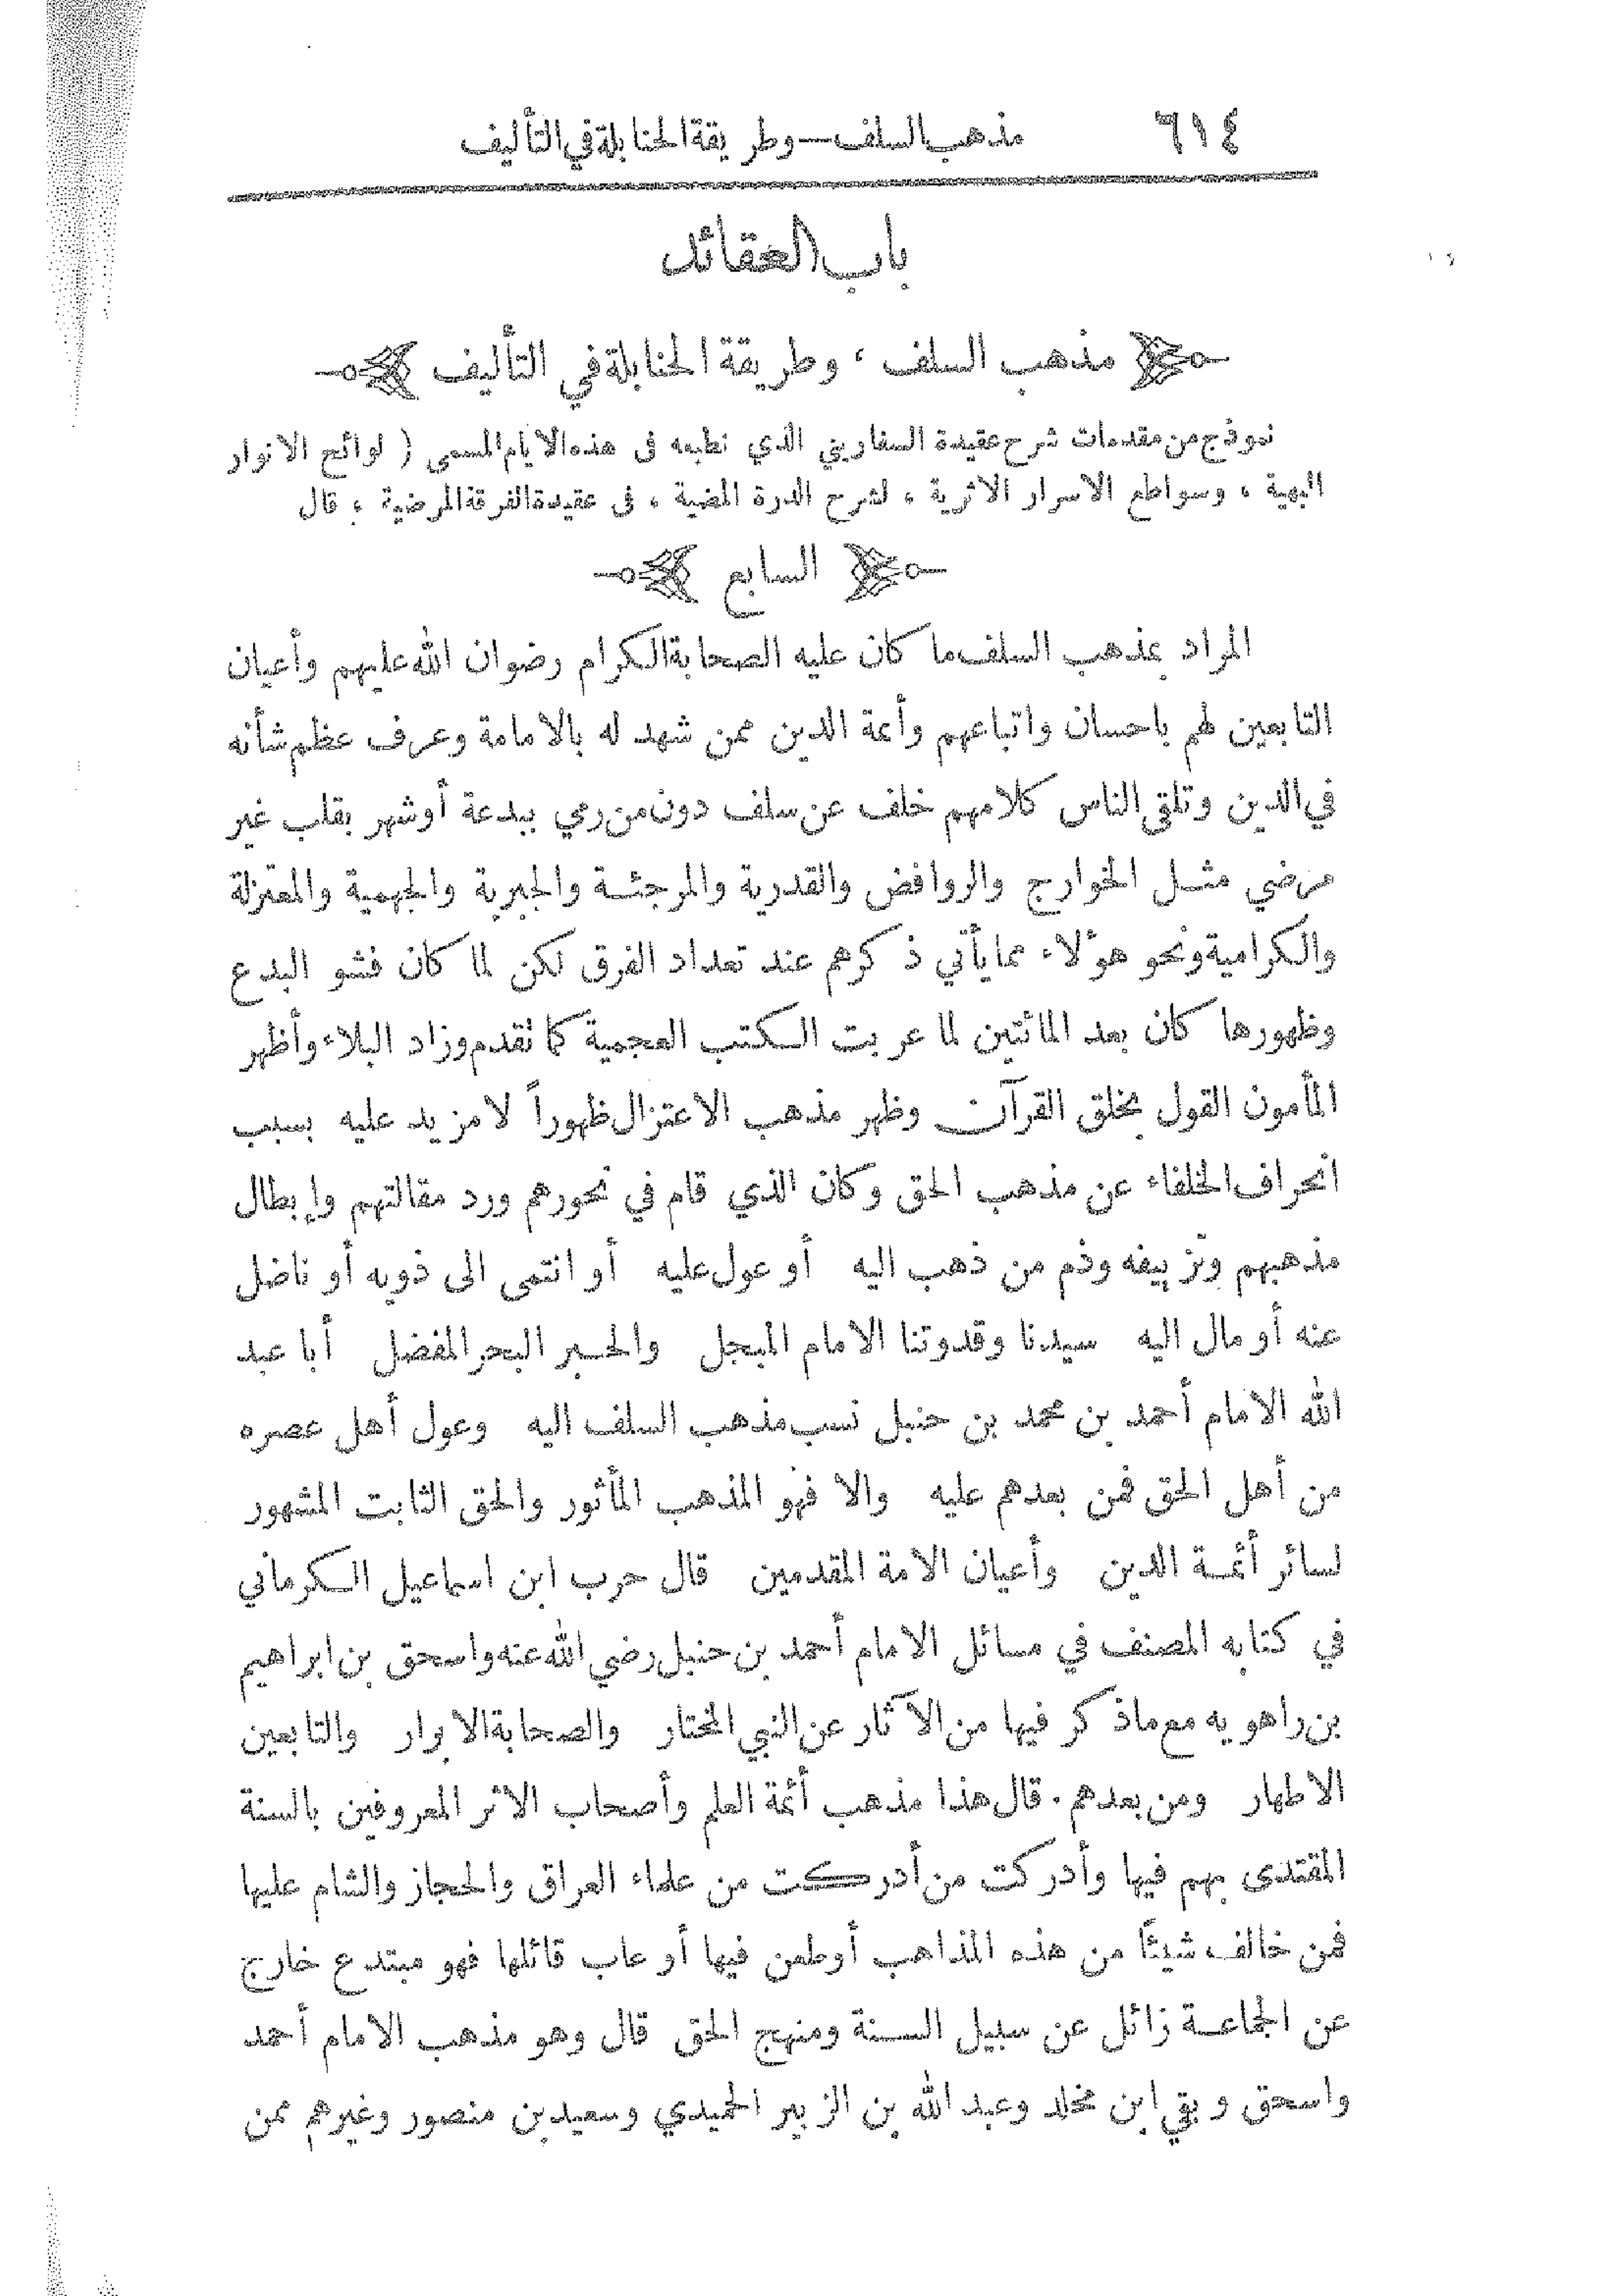 ٦١٤ مذهب السلف — وطريقة الحنابلة في التأليف
باب العقائد
مذهب السلف ، وطريقة الحنابلة في التأليف
نموذج من مقدمات شرح عقيدة السفاريني الذي نطبعه فى هذه الايام المسمى ( لوائح الانوار
البهية ، وسواطع الاسرار الاثرية ، لشرح الدرة المضية ، فى عقيدة الفرقة المرضية ، قال
السابع
المراد بمذهب السلف ما كان عليه الصحابة الكرام رضوان الله عليهم وأعيان
التابعين لهم باحسان واتباعهم وأئمة الدين ممن شهد له بالامامة وعرف عظم شأنه
في الدين وتلقى الناس كلامهم خلف عن سلف دون من رمي ببدعة أو شهر بقلب غير
مرضي مثل الخوارج والروافض والقدرية والمرجئة والجبرية والجهمية والمعتزلة
والكرامية ونحو هؤلاء مما يأتي ذكرهم عند تعداد الفرق لكن لما كان فشو البدع
وظهورها كان بعد المائتين لما عربت الكتب العجمية كما تقدم وزاد البلاء وأظهر
المأمون القول بخلق القرآن وظهر مذهب الاعتزال ظهوراً لا مزيد عليه بسبب
انحراف الخلفاء عن مذهب الحق وكان الذي قام في نحورهم ورد مقالتهم وإبطال
مذهبهم وتزييفه وذم من ذهب اليه أو عول عليه أو انتمى الى ذويه أو ناضل
عنه أو مال اليه سيدنا وقدوتنا الامام المبجل والحبر البحر المفضل أبا عبد
الله الامام أحمد بن محمد بن حنبل نسب مذهب السلف اليه وعول أهل عصره
من أهل الحق فمن بعدهم عليه والا فهو المذهب المأثور والحق الثابت المشهور
لسائر أئمة الدين وأعيان الامة المقدمين قال حرب ابن اسماعيل الكرماني
في كتابه المصنف في مسائل الامام أحمد بن حنبل رضي الله عنه واسحق بن ابراهيم
بن راهويه مع ماذكر فيها من الآثار عن النبي المختار والصحابة الابرار والتابعين
الاطهار ومن بعدهم . قال هذا مذهب أئمة العلم وأصحاب الاثر المعروفين بالسنة
المقتدى بهم فيها وأدركت من أدركت من علماء العراق والحجاز والشام عليها
فمن خالف شيئاً من هذه المذاهب أو طعن فيها أو عاب قائلها فهو مبتدع خارج
عن الجماعة زائل عن سبيل السنة ومنهج الحق قال وهو مذهب الامام أحمد
واسحق وبقي ابن مخلد وعبد الله بن الزبير الحميدي وسعيد بن منصور وغيرهم ممن